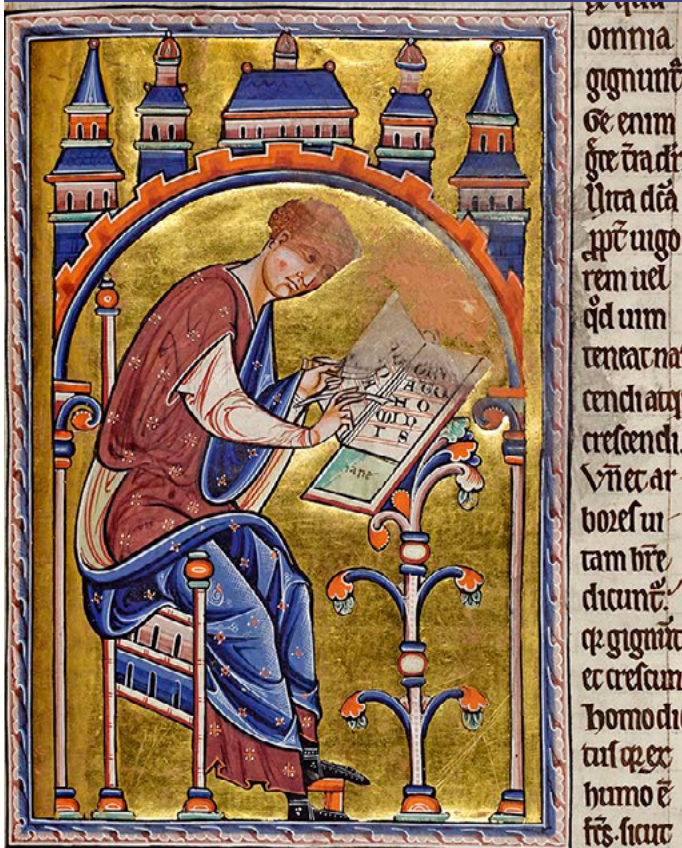 omnia
gignunt᷑
Ge enim
g̃te t̃ra dic̄
Uita dc̄a
ꝓpt̄ uigo
rem uel
qd̄ uim
teneat nas
cendi atq
crescendi.
Vn̄ et ar
bores ui
tam hr̄e
dicunt᷑
q̢ gignūt
et crescun
Homo dic
tus q̢ ex
humo ē
fc̄s. sicut